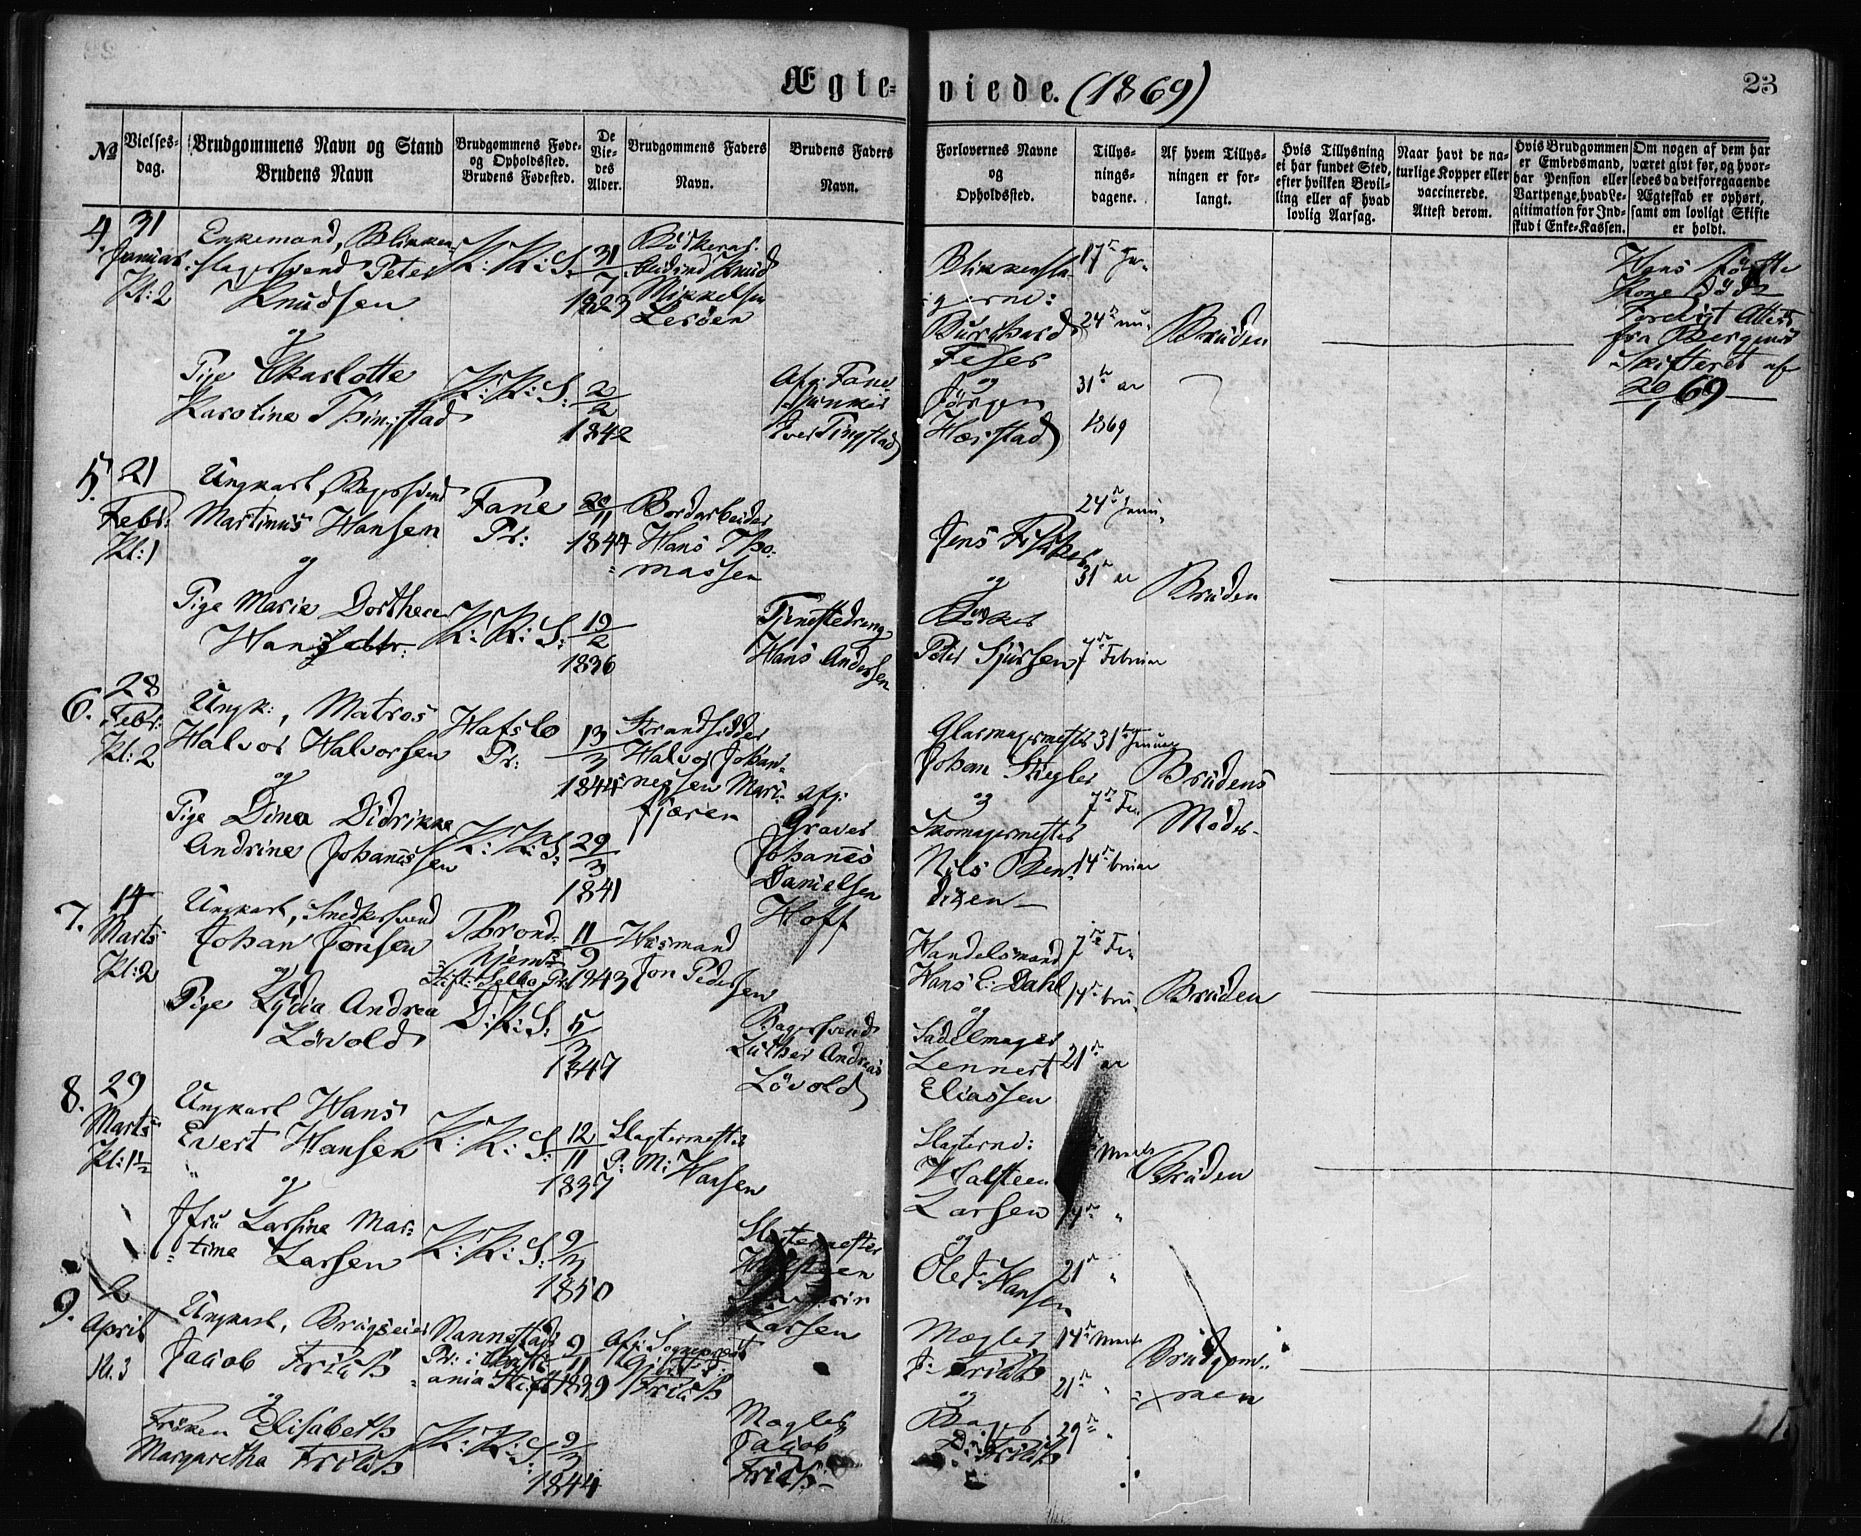 Ægte- viede. (1869)
23
No
Vielses-
dag.
Brudgommens Navn og Stand
Brudens Navn
Brudgommens Føde-
og Opholdssted.
Brudens Fødested.
De
Vie-
des
Alder.
Brudgommens Faders
Navn.
Brudens Faders
Navn.
Forlovernes Navne
og
Opholdssted.
Tillys-
nings-
dagene.
Af hvem Tillys-
ningen er for-
langt.
Hvis Tillysning
ei har fundet Sted,
efter hvilken Bevil-
ling eller af hvad
lovlig Aarsag.
Naar havt de na-
turlige Kopper eller
vaccinerede.
Attest derom.
Hvis Brudgommen
er Embedsmand,
har Pension eller
Vartpenge, hvad Le-
gitimation for Ind-
skud i Enke-Kassen.
Om nogen af dem har
været givt før, og hvor-
ledes da det foregaaende
Ægteskab er ophørt,
samt om lovligt Skifte
er holdt.
4.
31
Januar
Kl: 2
Enkemand, Blikken-
slagersvend Peter
Knudsen
og
Pige Charlotte
Karoline Thingstad
K: K: S.
K: K: S:
31
7
1823
2
2
1842
Knud
Mikkelsen
Lerøen
Afg: Fane-
junker
Iver Tingstad
Blikkensla-
gerne:
Burchard
Feser
og
Jørgen
Hæistad
17de Ja-
24de nu-
31te ar
1869
Bruden
Hans første
Kone død
Foreviist Attest
fra Bergens
Skifteret af
20/1 69
5.
21
Febr:
Kl: 1
Ungkarl, Bagersvend
Martinus Hansen
og
Pige Marie Dorthea
Hansdtr:
Fane
Pr:
K: K: S:
20
11
1844
19
2
1836
Bordarbeider
Hans Tho-
massen
Tjenestedreng
Hans Andersen
Jens Fisker
og
Peter Sjursen
24de Janu-
31te ar
7de Februar
Bruden
6.
28
Febr:
Kl: 2
Ungk:, Matros
Halvor Halvorsen
og
Pige Dina Didrikke
Andrine Johannessen
Hafslo
Pr:
K: K: S:
13
3
1844
29
3
1841
Strandsidder
Halvor Johan-
nessen Mari-
fjæren
Afg:
Graver
Johanes
Danielsen
Hoff
Glarmagermester
Johan Stegler
og
Skomagermester
Nils Ben-
dixen
31te Januar
7de Fe-
14de bruar
Brudens
Moder
7.
14
Marts
Kl: 2
Ungkarl, Snedkersvend
Johan Jonsen
og
Pige Lydia Andrea
Løvold
Thrond-
hjems
Stift: Selbo Pr:
D: K: S:
11
9
1843
5
2
1847
Huusmand
Jon Pedersen
Bagersvend
Luther Andreas
Løvold
Handelsmand
Hans E: Dahl
og
Sadelmager
Lennert
Eliassen
7de Fe-
14de bru-
21de ar
Bruden
8.
29
Marts
Kl: 1 1/2
Ungkarl Hans
Evert Hansen
og
Jfru Larsine Mar-
tine Larsen
K: K: S:
K: K: S:
12
11
1837
9
3
1850
Slagtermester
P: M: Hansen
Slagtermester
Larsen
Slagterne:
Halsteen
Larsen
og
Ole d: Hansen
Marts
14de "
21de "
Bruden
9.
2
April
Kl. 3
Ungkarl, Brugseier
Jacob Friis
og
Frøken Elisabeth
Margaretha
Nannestad
Pr: i Christi-
ania Stift
K: K: S:
9
11
1839
9
3
1844
Afg: Sogneprest
Mægler
Jacob
Mægler
J:
og
14de Marts
21de "
29de "
Brudgom-
men